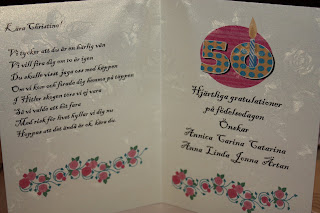 Kära Christina!
Vi tycker att du är en härlig vän
Vi vill fira dig om 10 år igen
Du skulle visst jaga oss med käppen
Om vi kom och firade dig hemma på trappen
I Hitler skogen törs vi ej vara
Så vi valde att hit fara
Med risk för livet hyllar vi dig nu
Hoppas att det ändå är ok, kära du
50
Hjärtliga gratulationer
på födelsedagen
Önskar
Annica Carina Catarina
Anna Linda Jenna Ärtan